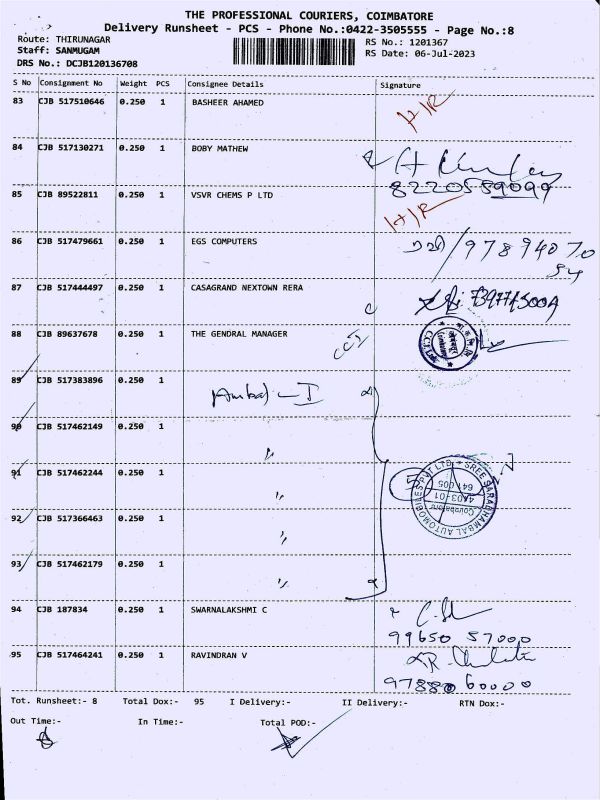 THE PROFESSIONAL COURIERS, COIMBATORE
Delivery Runsheet - PCS - Phone No.:0422-3505555 - Page No.:8
Route: THIRUNAGAR
RS No.: 1201367
Staff: SANMUGAM
RS Date: 06-Jul-2023
DRS No.: DCJB120136708
S No Consignment No Weight PCS Consignee Details Signature
83 CJB 517510646 0.250 1 BASHEER AHAMED
84 CJB 517130271 0.250 1 BOBY MATHEW
8220589099
85 CJB 89522811 0.250 1 VSVR CHEMS P LTD
86 CJB 517479661 0.250 1 EGS COMPUTERS 97894070
54
87 CJB 517444497 0.250 1 CASAGRAND NEXTOWN RERA
88 CJB 89637678 0.250 1 THE GENDRAL MANAGER
89 CJB 517383896 0.250 1 Ambal - I
90 CJB 517462149 0.250 1 "
91 CJB 517462244 0.250 1 " 5
SREE SARADHAMBAL AUTOMOBILES PVT LTD
4A03-01
Coimbatore
641 005
92 CJB 517366463 0.250 1 "
93 CJB 517462179 0.250 1 "
94 CJB 187834 0.250 1 SWARNALAKSHMI C
99650 57000
95 CJB 517464241 0.250 1 RAVINDRAN V
97880 60000
Tot. Runsheet:- 8 Total Dox:- 95 I Delivery:- II Delivery:- RTN Dox:-
Out Time:- In Time:- Total POD:-